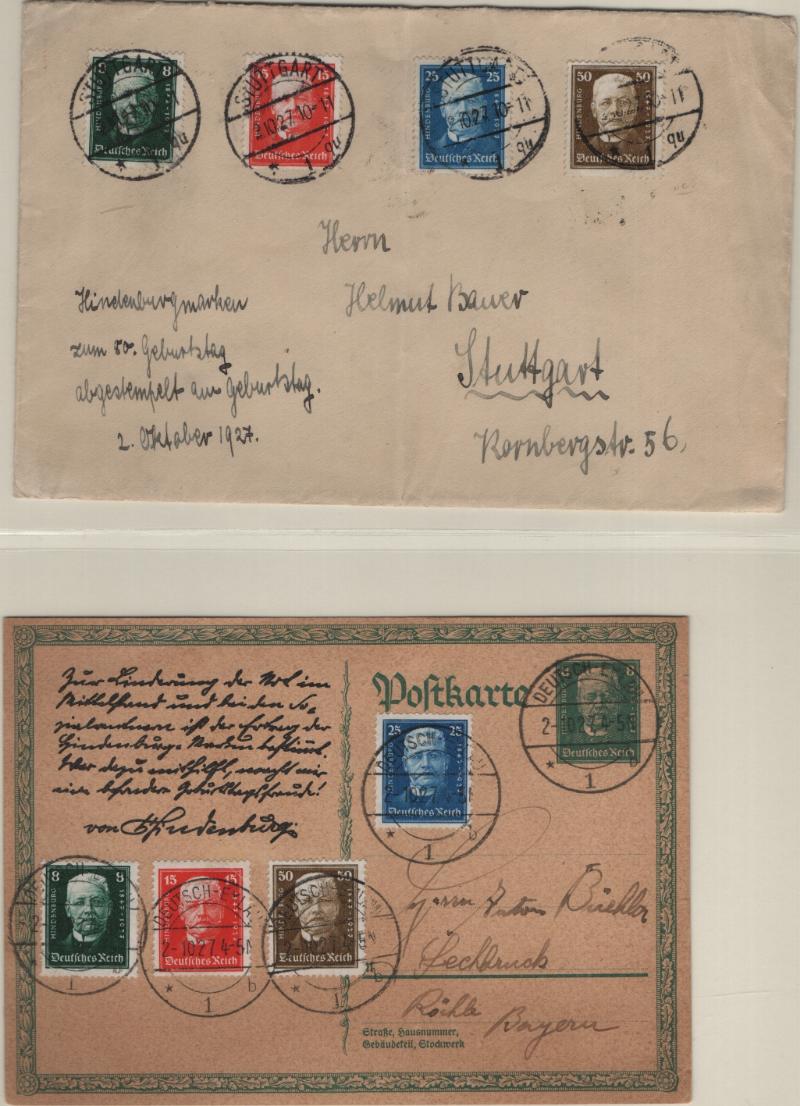 8 8
HINDENBURG
1847-1927
Deutsches Reich
STUTTGART
15
Deutsches Reich
STUTTGART
10.27.10-11
1
25 25
HINDENBURG
Deutsches Reich
50 50
HINDENBURG
Deutsches Reich
Herrn
Helmut Bauer
Stuttgart
Kornbergstr. 56.
Hindenburgmarken
zum 80. Geburtstag
abgestempelt am Geburtstag.
2. Oktober 1927.
Zur Linderung der Not im
Mittelstand und bei den So-
zialrentnern ist der Ertrag der
Hindenburg-Marken bestimmt.
Wer dazu mithilft, macht mir
eine besondere Geburtstagsfreude!
von Hindenburg
Postkarte
8
HINDENBURG
Deutsches Reich
2-10.27.4-5N
* 1 b
25 25
HINDENBURG
Deutsches Reich
1
8 8
HINDENBURG
1847-1927
Deutsches Reich
1
15 15
HINDENBURG
Deutsches Reich
2-10.27.4-5N
* 1 b
50 50
HINDENBURG
Deutsches Reich
1
Herrn Anton
Bayern
Straße, Hausnummer,
Gebäudeteil, Stockwerk